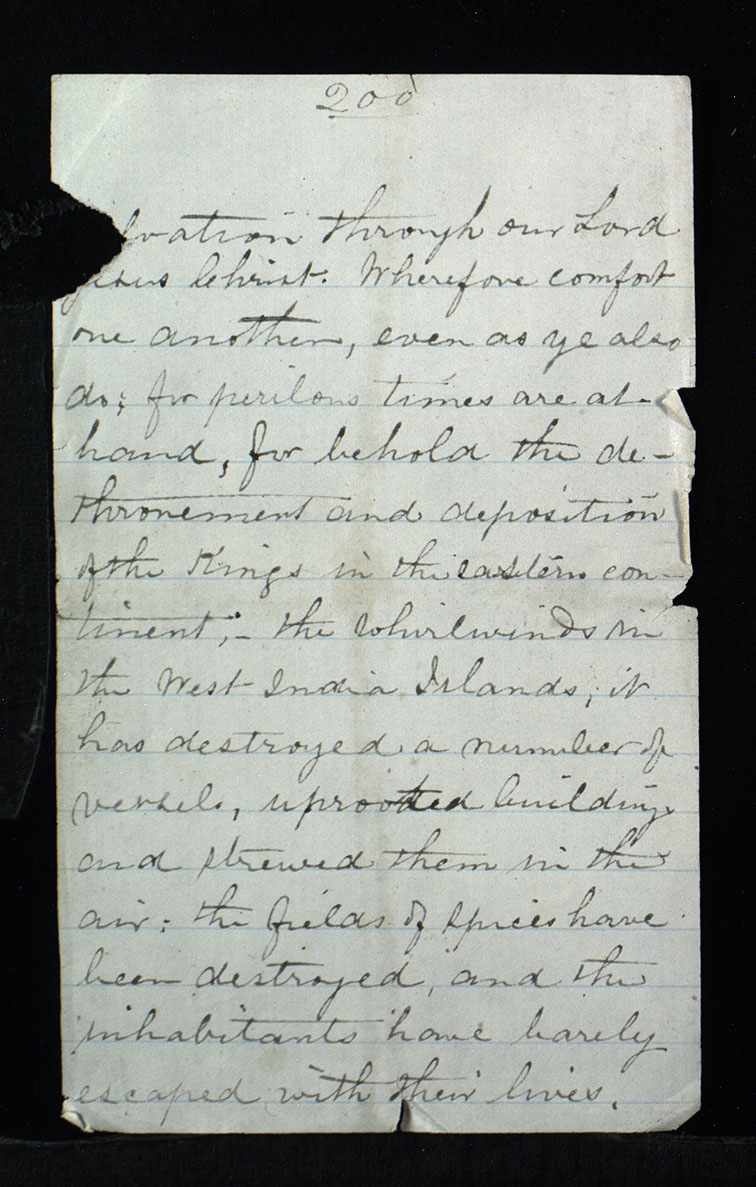 200
lvation through our Lord
Jesus Christ. Wherefore comfort
one another, even as ye also
do; for perilous times are at-
hand, for behold the de-
thronement and deposition
of the Kings in the eastern con-
tinent;- the whirlwinds in
the West India Islands, it
has destroyed a number of
vessels, uprooted buildings
and strewed them in the
air; the fields of spices have
been destroyed, and the
inhabitants have barely
escaped with their lives.